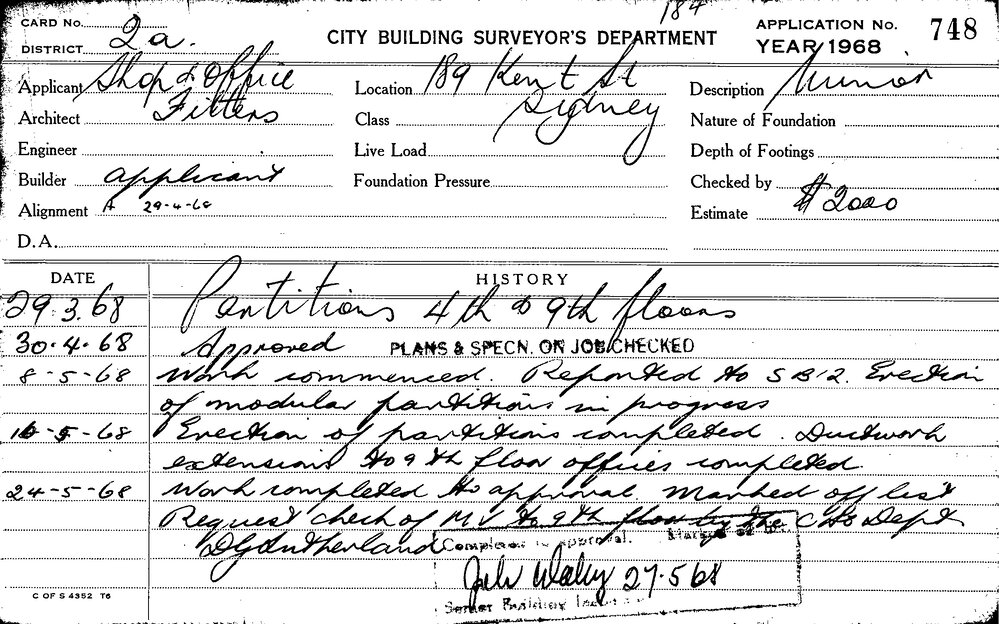 184
CARD No. APPLICATION No. 748
DISTRICT 2a. CITY BUILDING SURVEYOR'S DEPARTMENT YEAR/1968
Applicant Shop & Office Location 189 Kent St Description Minor
Architect Fitters Class Sydney Nature of Foundation
Engineer Live Load Depth of Footings
Builder applicant Foundation Pressure Checked by
Alignment A 29-4-68 Estimate $2000
D.A.
DATE HISTORY
29.3.68 Partitions 4th & 9th floors
30.4.68 Approved PLANS & SPECN. ON JOB CHECKED
8-5-68 Work commenced. Reported to SB12. Erection
of modular partitions in progress
16-5-68 Erection of partitions completed. Ductwork
extensions to 9th floor offices completed.
24-5-68 Work completed to approval. Marked off list
Request check of MV to 9th floor by the CHS Dept
DGSutherland Completed to approval. Marked off
27.5.68
Senior Building
C OF S 4352 T6